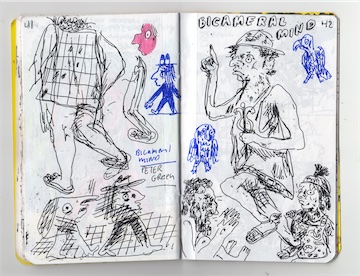 41
BICAMERAL
MIND
PETER
GREEN
BICAMERAL
MIND
42